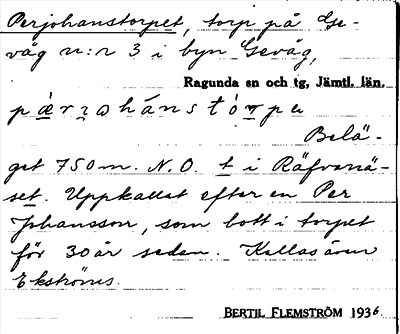 Perjohanstorpet, torp på Ge-
våg n:r 3 i byn Gevåg,
Ragunda sn och tg, Jämtl. län.
Belä-
get 750 m. N.O. t i Räfvanä-
set. Uppkallat efter en Per
Johansson, som bott i torpet
för 30 år sedan. Kallas även
Ekströms.
BERTIL FLEMSTRÖM 1936.